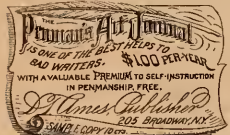 THE
Penman's Art Journal
IS ONE OF THE BEST HELPS TO
BAD WRITERS. $1.00 PER YEAR
WITH A VALUABLE PREMIUM TO SELF-INSTRUCTION
IN PENMANSHIP, FREE.
D.T. Ames, Publisher
205 BROADWAY, N.Y.
SAMPLE COPY 10 CTS.